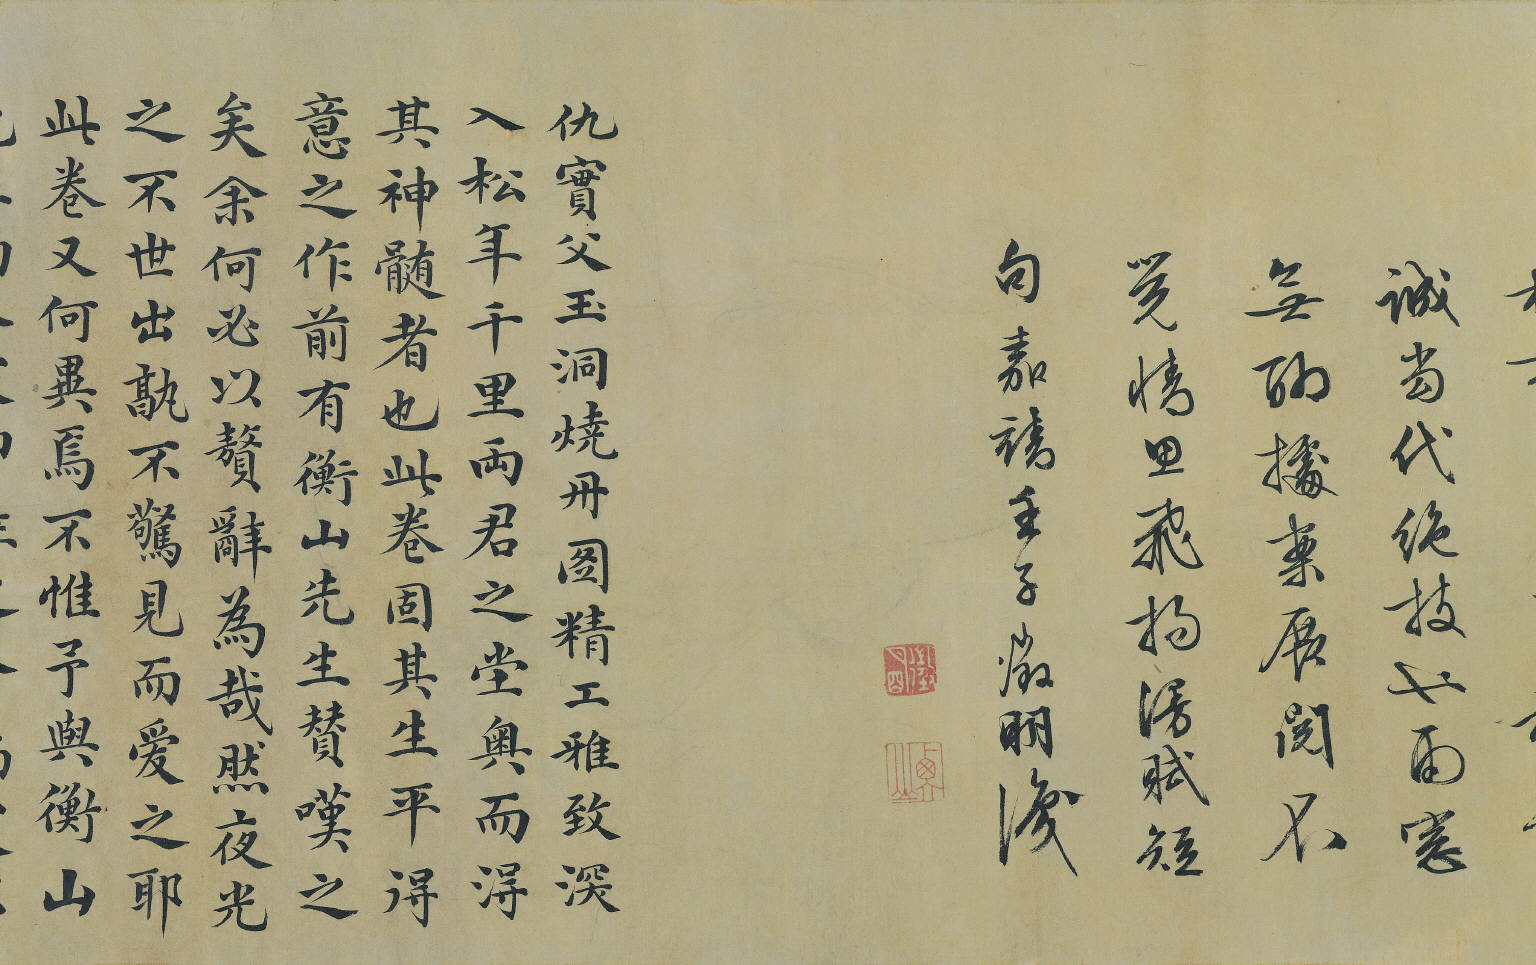 誠当代絶技也雨窓
無聊援案展閱不
覺情思飛揚漫賦短
句嘉靖壬子徵明識
仇實父玉洞燒丹圖精工雅致深
入松年千里両君之堂奥而淂
其神髄者也此卷固其生平得
意之作前有衡山先生賛嘆之
矣余何必以贅辭為哉然夜光
之不世出孰不驚見而爱之耶
此卷又何異焉不惟予與衡山